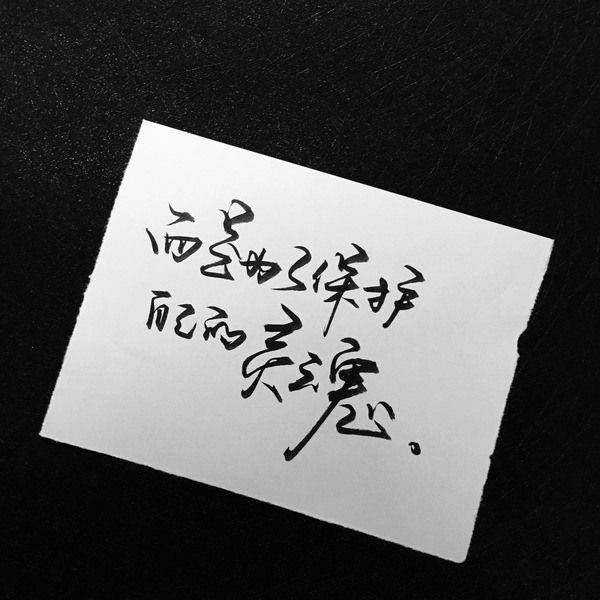 而是为了保护
自己的灵魂。